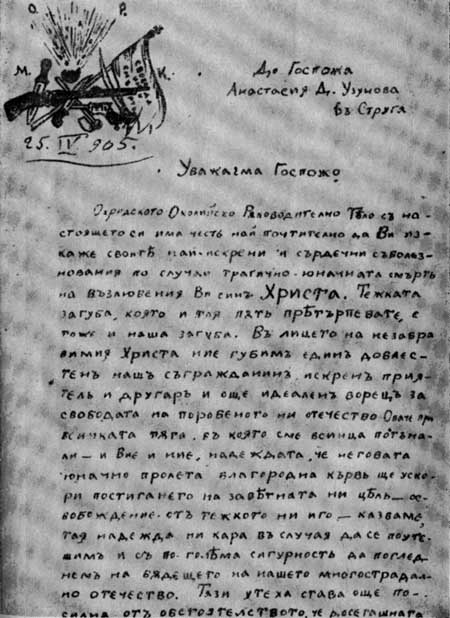 О. Р.
М. К.
25. IV 905.
До Госпожа
Анастасия Д. Узунова
въ Струга
Уважаема Госпожо
Охридското Околийско Ръководително Тѣло съ на-
стоящето си има честь най почтително да Ви из-
каже своитѣ най-искрени и сърдечни съболез-
нования по случай трагично-юначната смърть
на възлюбения Ви синъ Христа. Тежката
загуба, която и тоя пять прѣтърпевате, е
тоже и наша загуба. Въ лицето на незабра
вимия Христа ние губимъ единъ доблес-
тенъ нашъ съгражданинъ, искренъ прия-
тель и другарь и още идеаленъ борецъ за
свободата на поробеното ни отечество Обаче при
всичката тѫга, въ която сме всинца потъна-
ли — и Вие и ние, надеждата, че неговата
юначно пролета благородна кървь ще уско-
ри постигането на завѣтната ни цѣль — ос-
вобождение отъ тежкото ни иго — казваме,
тая надежда ни кара въ случая да се поуте-
шимъ и съ по-голѣма сигурность да поглед-
немъ на бѫдещето на нашето многострадал-
но отечество. Тази утеха става още по-
силна отъ обстоятелството, че досегашната